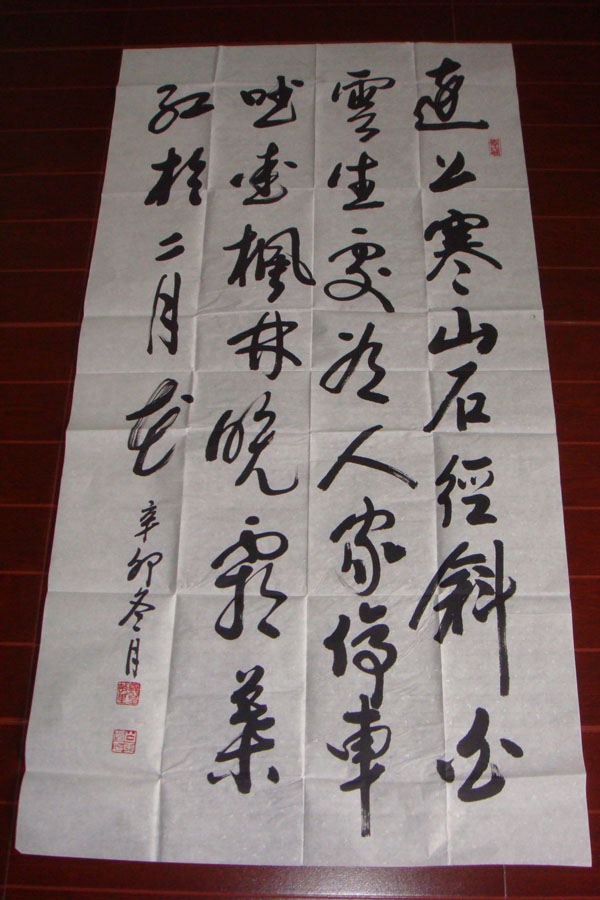 遠上寒山石徑斜白
雲生處有人家停車
坐愛楓林晚霜葉
紅於二月花
辛卯冬月